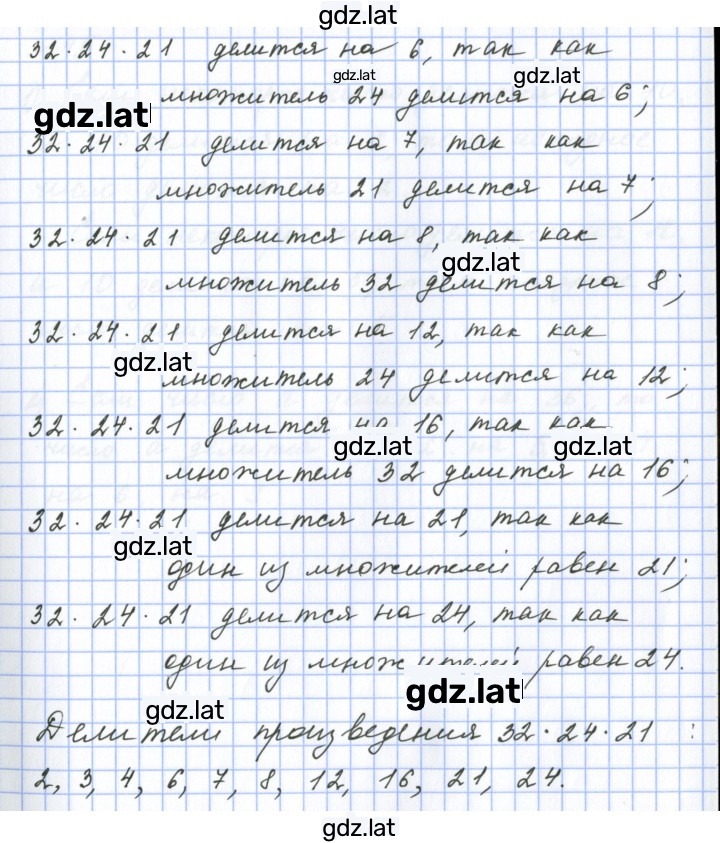 gdz.lat
32·24·21 делится на 6, так как
gdz.lat
gdz.lat
множитель 24 делится на 6;
gdz.lat
32·24·21 делится на 7, так как
множитель 21 делится на 7;
32·24·21 делится на 8, так как
gdz.lat
множитель 32 делится на 8;
32·24·21 делится на 12, так как
gdz.lat
множитель 24 делится на 12;
32·24·21 делится на 16, так как
gdz.lat gdz.lat
множитель 32 делится на 16;
32·24·21 делится на 21, так как
gdz.lat
один из множителей равен 21;
32·24·21 делится на 24, так как
один из множителей равен 24.
gdz.lat
gdz.lat
Делители произведения 32·24·21 :
2, 3, 4, 6, 7, 8, 12, 16, 21, 24.
gdz.lat